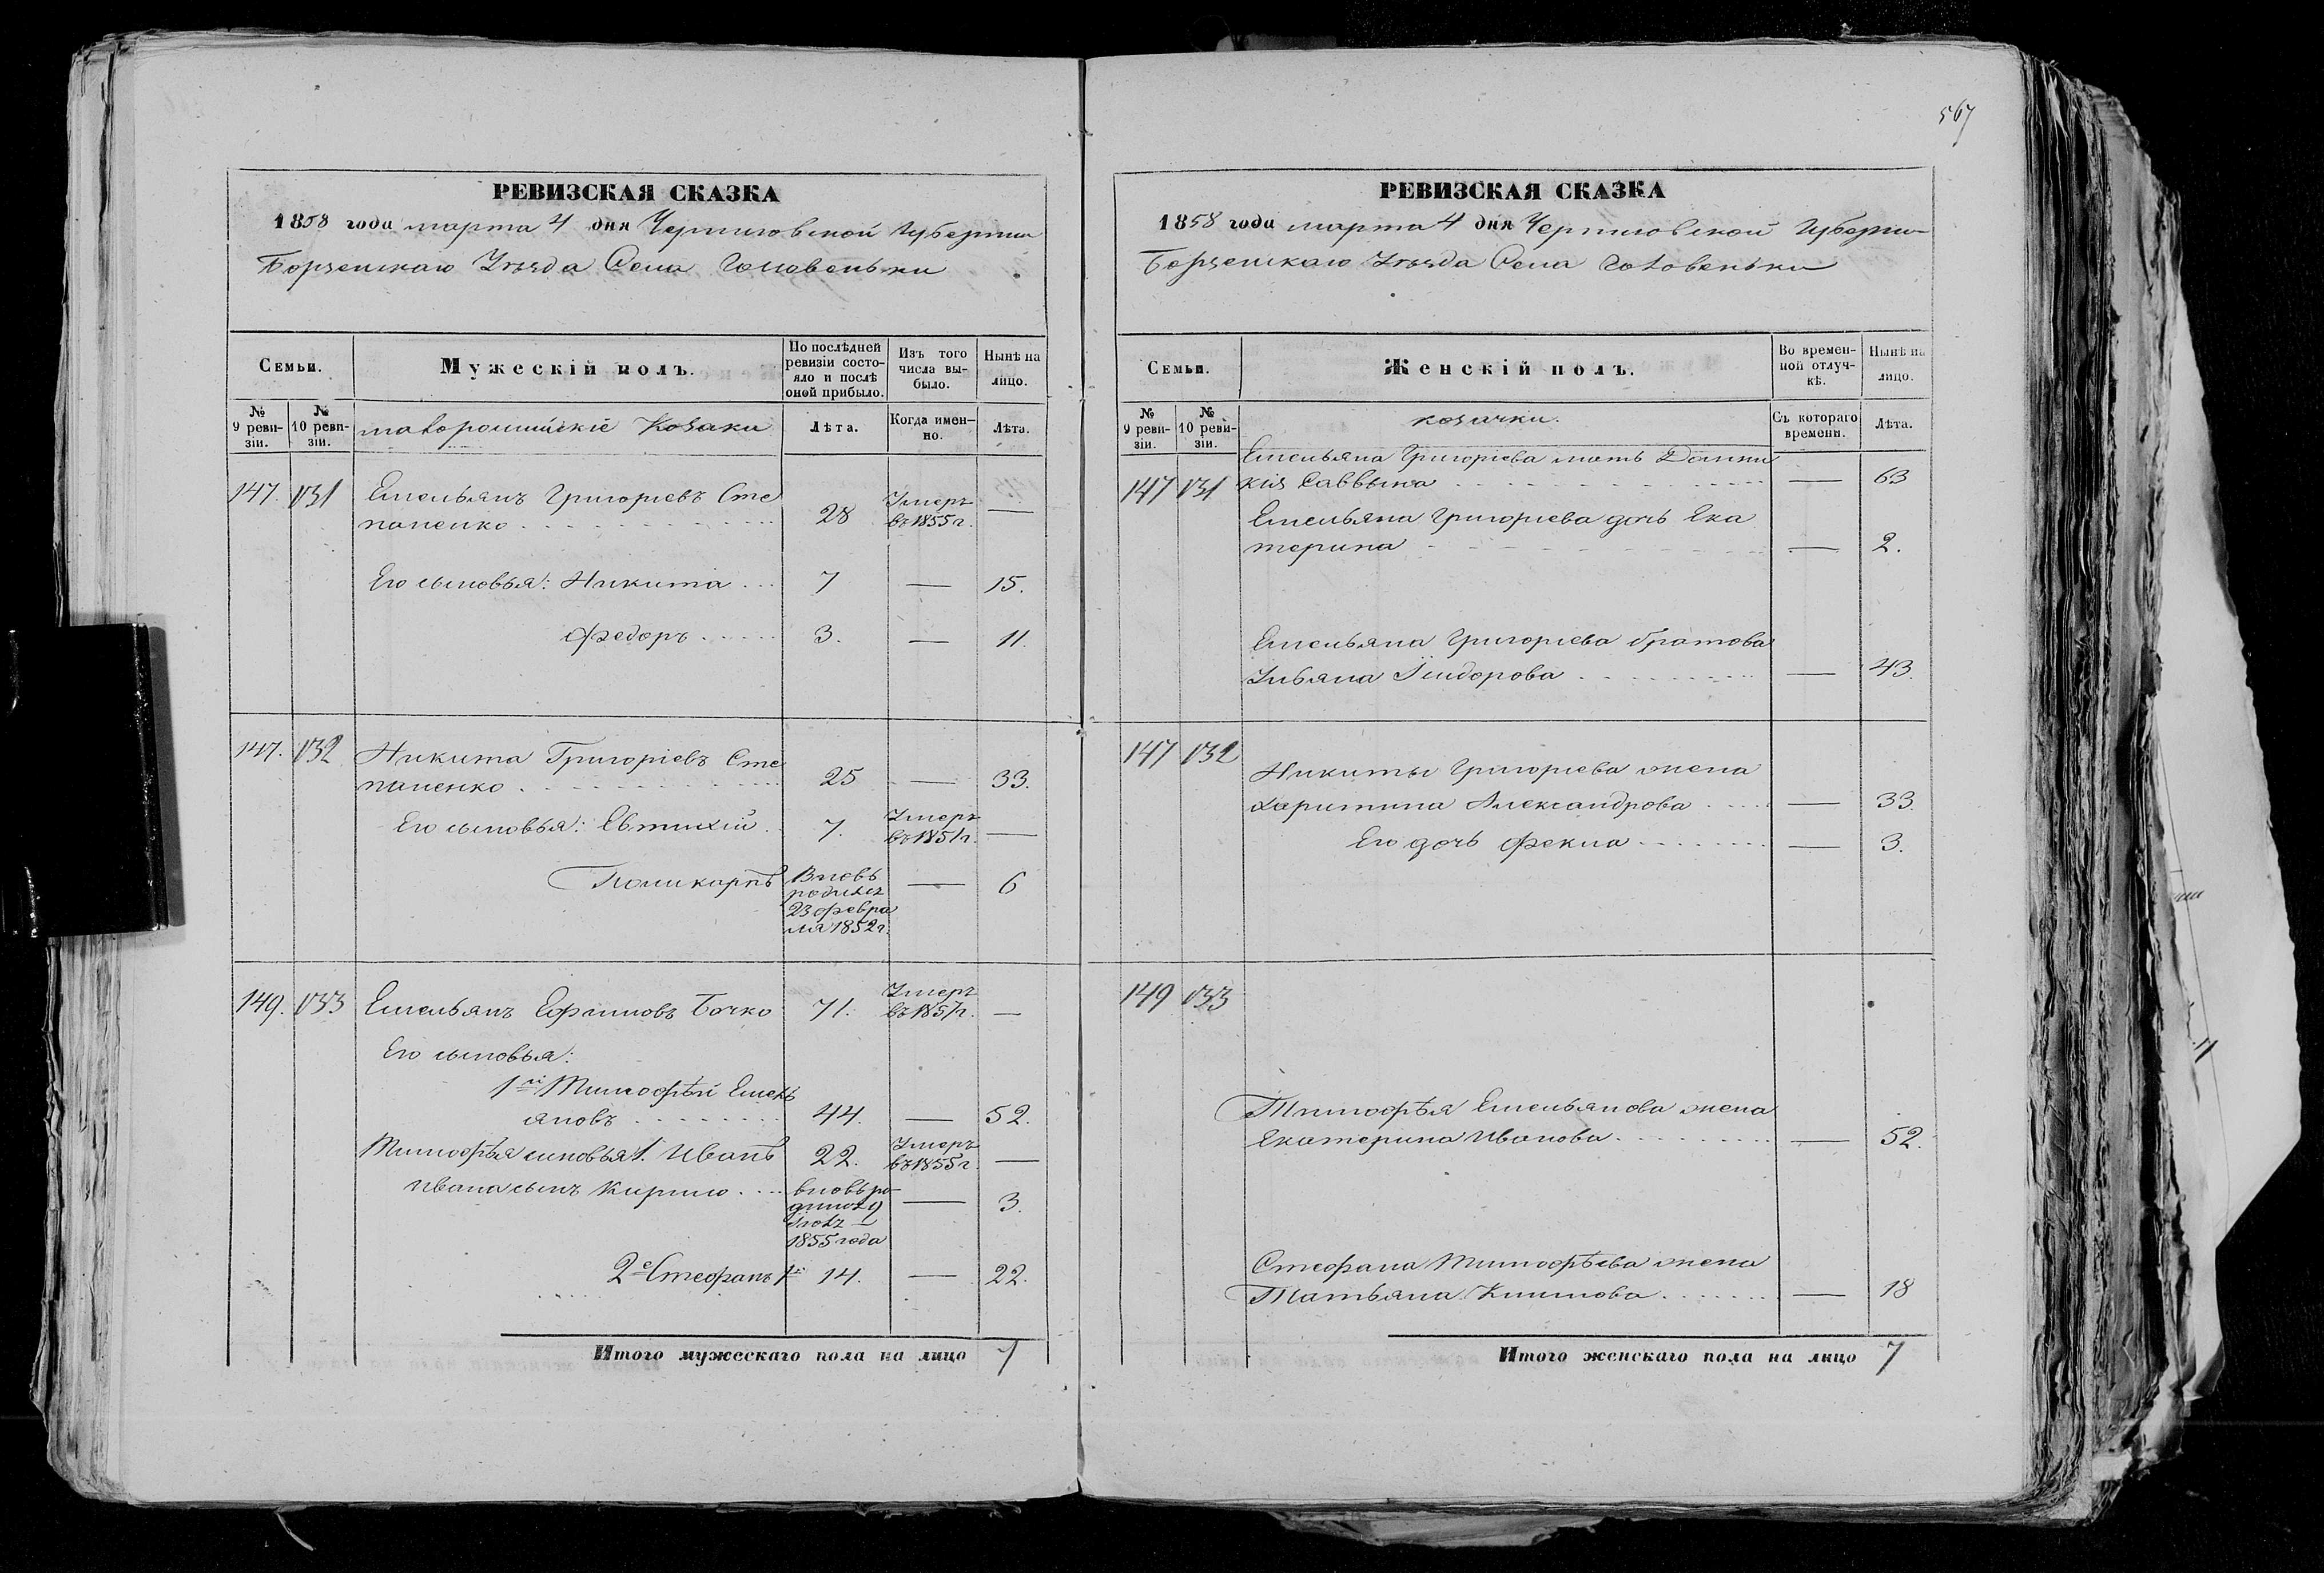 567
РЕВИЗСКАЯ СКАЗКА
1858 года марта 4 дня Черниговской Губернии
Борзенскаго Уѣзда Села Головеньки
Семьи.
Мужескій полъ.
По послѣдней ревизіи состояло и послѣ оной прибыло.
Изъ того числа выбыло.
Нынѣ на лицо.
№ 9 ревизіи.
№ 10 ревизіи.
малороссійскіе Козаки
Лѣта.
Когда именно.
Лѣта.
147. 131 Емельянъ Григорьевъ Сте
паненко 28 Умеръ въ 1855 г. —
Его сыновья: Никита 7 — 15.
Федоръ 3. — 11.
147. 132 Никита Григоріевъ Сте
паненко 25 — 33.
Его сыновья: Евтихій 7. Умеръ въ 1851 г. —
Поликарпъ Вновь родился 23 февраля 1852 г. — 6
149. 133 Емельянъ Ефимовъ Бочко 71. Умеръ въ 1857 г. —
Его сыновья:
1й Тимофѣй Емель
яновъ 44. — 52.
Тимофѣя сыновья 1. Иванъ 22. Умеръ въ 1855 г. —
Ивана сынъ Кирило вновь ро-
1855 года — 3.
2е Стефанъ 14. — 22.
Итого мужескаго пола на лицо 7
РЕВИЗСКАЯ СКАЗКА
1858 года марта 4 дня Черниговской Губерніи
Борзенскаго Уѣзда Села Головеньки
Семьи.
Женскій полъ.
Во временной отлучкѣ.
Нынѣ на лицо.
№ 9 ревизіи.
№ 10 ревизіи.
козачки.
Съ котораго времени.
Лѣта.
Емельяна Григоріева мать Домни
147 131 кія Саввына — 63
Емельяна Григоріева дочь Ека
терина — 2.
Емельяна Григоріева братова
Ульяна Сидорова — 43.
147 132
Никиты Григоріева жена
Харитина Александрова — 33.
Его дочь Фекла — 3.
149 133
Тимофѣя Емельянова жена
Екатерина Иванова — 52.
Стефана Тимофѣева жена
Татьяна Климова — 18
Итого женскаго пола на лицо 7